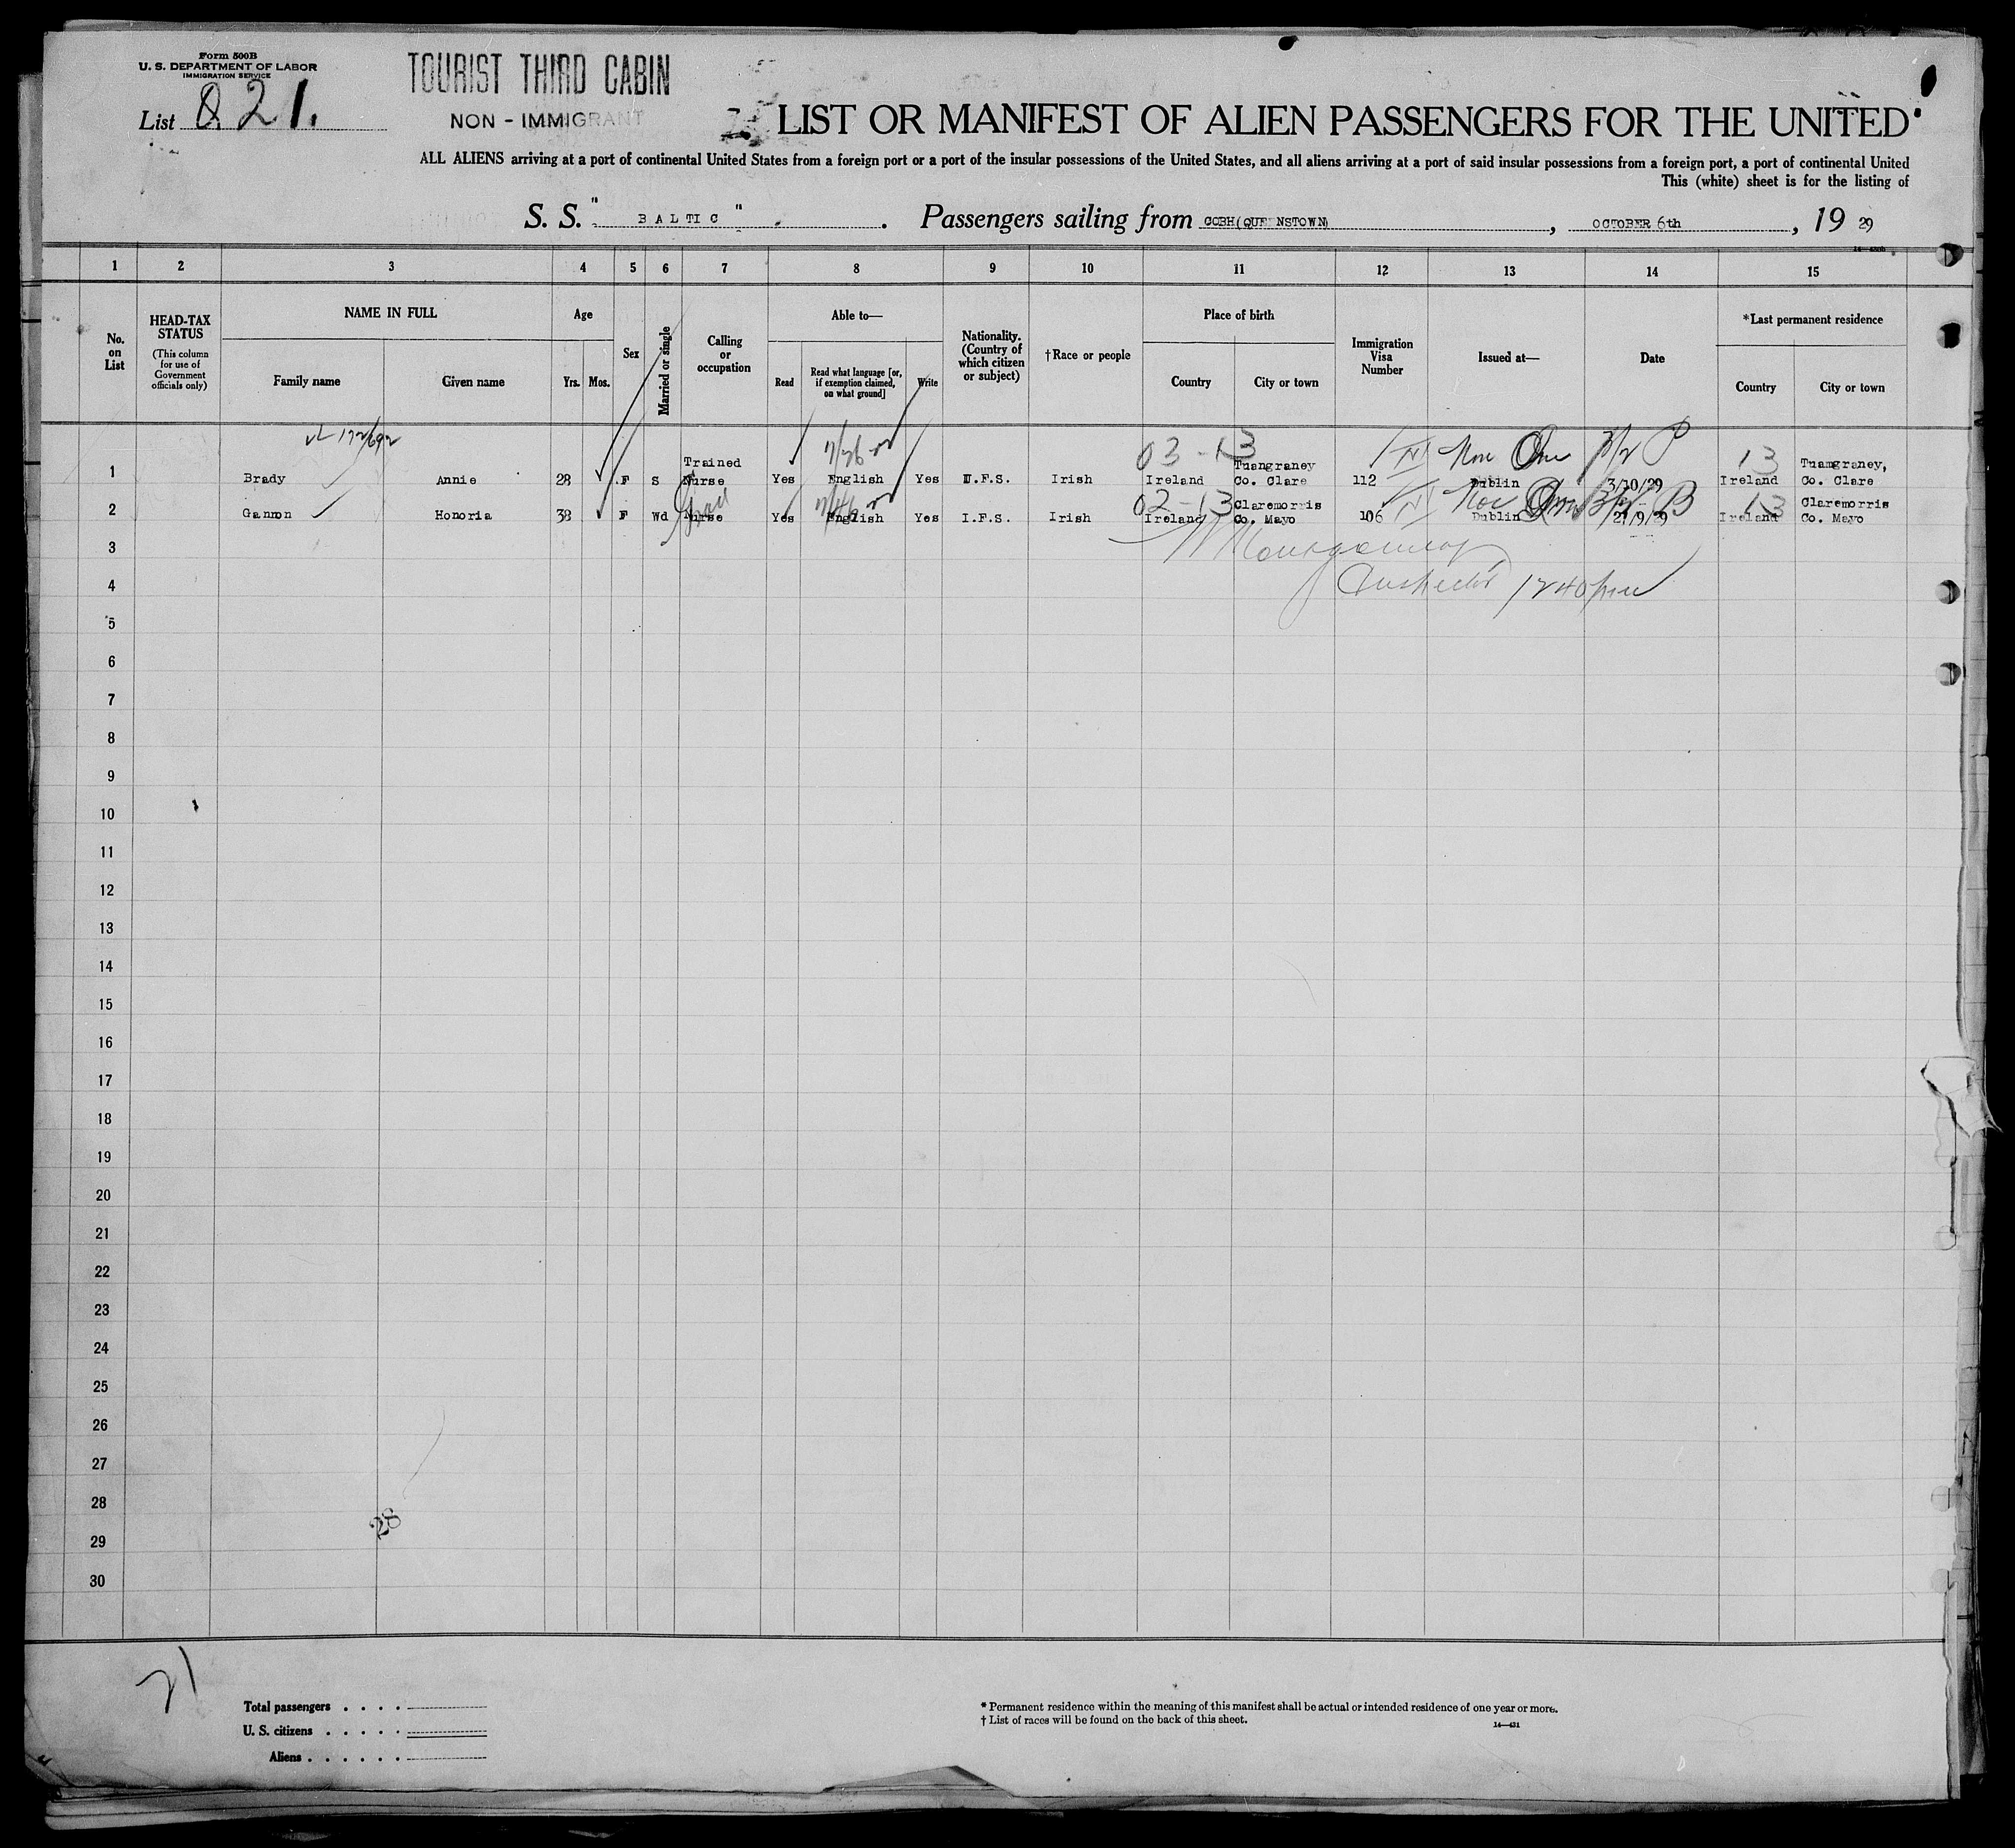 Form 500B
U. S. DEPARTMENT OF LABOR
IMMIGRATION SERVICE
List 821.
TOURIST THIRD CABIN
NON - IMMIGRANT
LIST OR MANIFEST OF ALIEN PASSENGERS FOR THE UNITED
ALL ALIENS arriving at a port of continental United States from a foreign port or a port of the insular possessions of the United States, and all aliens arriving at a port of said insular possessions from a foreign port, a port of continental United
This (white) sheet is for the listing of
S. S. "BALTIC". Passengers sailing from COBH(QUEENSTOWN), OCTOBER 6th, 19 29
1 2 3 4 5 6 7 8 9 10 11 12 13 14 15
No. on List
HEAD-TAX STATUS
(This column for use of Government officials only)
NAME IN FULL
Family name Given name
Age
Yrs. Mos.
Sex
Married or single
Calling or occupation
Able to—
Read
Read what language [or, if exemption claimed, on what ground]
Write
Nationality. (Country of which citizen or subject)
†Race or people
Place of birth
Country City or town
Immigration Visa Number
Issued at—
Date
*Last permanent residence
Country City or town
172/692
03-13 13
1 Brady Annie 28 F S Trained Nurse Yes English Yes I.F.S. Irish Ireland Tuamgraney Co. Clare 112 Dublin 3/10/29 Ireland Tuamgraney, Co. Clare
02-13 13
2 Gannon Honoria 38 F Wd Nurse Yes English Yes I.F.S. Irish Ireland Claremorris Co. Mayo 106 Dublin 21/9/29 Ireland Claremorris Co. Mayo
3 Montgomery
4 Inspector 1240 pm
5
6
7
8
9
10
11
12
13
14
15
16
17
18
19
20
21
22
23
24
25
26
27
28
29
30
28
21
Total passengers . . . .
U. S. citizens . . . . .
Aliens . . . . . .
* Permanent residence within the meaning of this manifest shall be actual or intended residence of one year or more.
† List of races will be found on the back of this sheet.
14—431